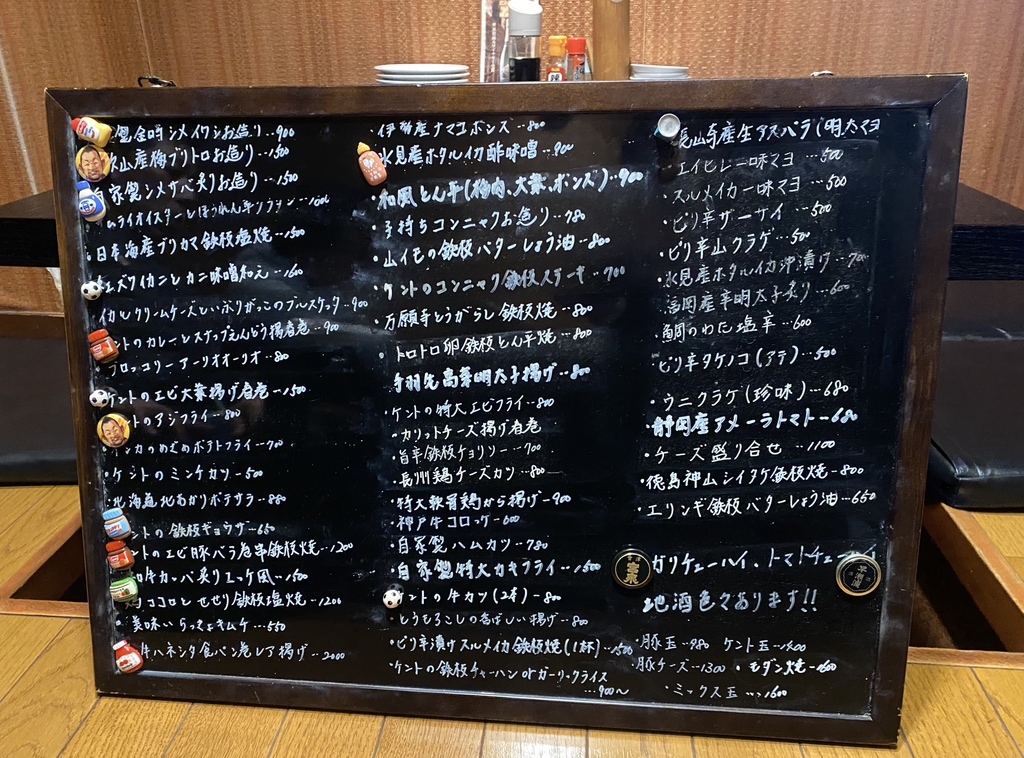 金時シメイワシお造り…900
山産梅ブリトロお造り…1500
自家製シメサバ炙りお造り…1500
ライオイスターとほうれん草グラタン…1000
日本海産ブリカマ鉄板塩焼…1500
ズワイカニとカニ味噌和え…1600
イカとクリームチーズといぶりがっこのブルスケッタ…900
ケントのカレーとスナップえんどう揚春巻…900
ブロッコリーアーリオオーリオ…80
ケントのエビ大葉揚げ春巻…1500
ケントのアジフライ…800
めざめポテトフライ…700
ケントのミンチカツ…500
北海道北あかりポテサラ…880
ケントの鉄板ギョウザ…650
ケントのエビ豚バラ巻串鉄板焼…1200
和牛カッパ炙りユッケ風…1500
ココロとせせり鉄板塩焼…1200
美味いらっきょキムチ…550
牛ハネシタ食パン巻レア揚げ…2000
・伊勢産ナマコポンズ…800
氷見産ホタルイカ酢味噌…900
・和風とん平(梅肉、大葉、ポンズ)…900
・子持ちコンニャクお造り…780
・山イモの鉄板バターしょう油…800
・ケントのコンニャク鉄板ステーキ…700
・万願寺とうがらし鉄板焼…800
・トロトロ卵鉄板とん平焼…800
・手羽先高菜明太子揚げ…800
・ケントの特大エビフライ…800
・カリットチーズ揚げ春巻
・旨辛鉄板チョリソー…700
・長州鶏チーズカツ…800
・特大軟骨鶏から揚げ…900
・神戸牛コロッケ…600
・自家製ハムカツ…780
・自家製特大カキフライ…1500
ケントの牛カツ(2本)…800
・とうもろこしの香ばしい揚げ…800
・ピリ辛漬けスルメイカ鉄板焼(1杯)…1500
・ケントの鉄板チャーハンorガーリックライス
…900〜
長崎産生アスパラ(明太マヨ
・エイヒレ一味マヨ…500
・スルメイカ一味マヨ…500
・ピリ辛ザーサイ…500
・ピリ辛山クラゲ…500
・氷見産ホタルイカ沖漬け…700
・福岡産辛明太子炙り…600
・鯛のわた塩辛…600
・ピリ辛タケノコ(アテ)…500
・ウニクラゲ(珍味)…680
・静岡産アメーラトマト…680
・チーズ盛り合せ…1100
・徳島神山シイタケ鉄板焼…800
・エリンギ鉄板バターしょう油…650
ガリチューハイ、トマトチューハイ
地酒色々あります!!
・豚玉…980 ケント玉…1400
・豚チーズ…1300 ・モダン焼…1600
・ミックス玉…1600